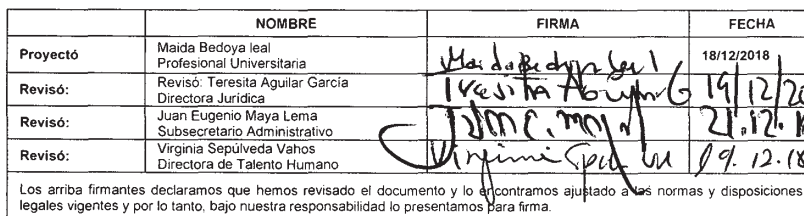 NOMBRE FIRMA FECHA
Proyectó Maida Bedoya leal
Profesional Universitaria Maida Bedoya Leal 18/12/2018
Revisó: Revisó: Teresita Aguilar García
Directora Jurídica Teresita Aguilar G 19/12/20
Revisó: Juan Eugenio Maya Lema
Subsecretario Administrativo 21.12.1
Revisó: Virginia Sepúlveda Vahos
Directora de Talento Humano Virginia 19.12.18
Los arriba firmantes declaramos que hemos revisado el documento y lo encontramos ajustado a las normas y disposiciones
legales vigentes y por lo tanto, bajo nuestra responsabilidad lo presentamos para firma.